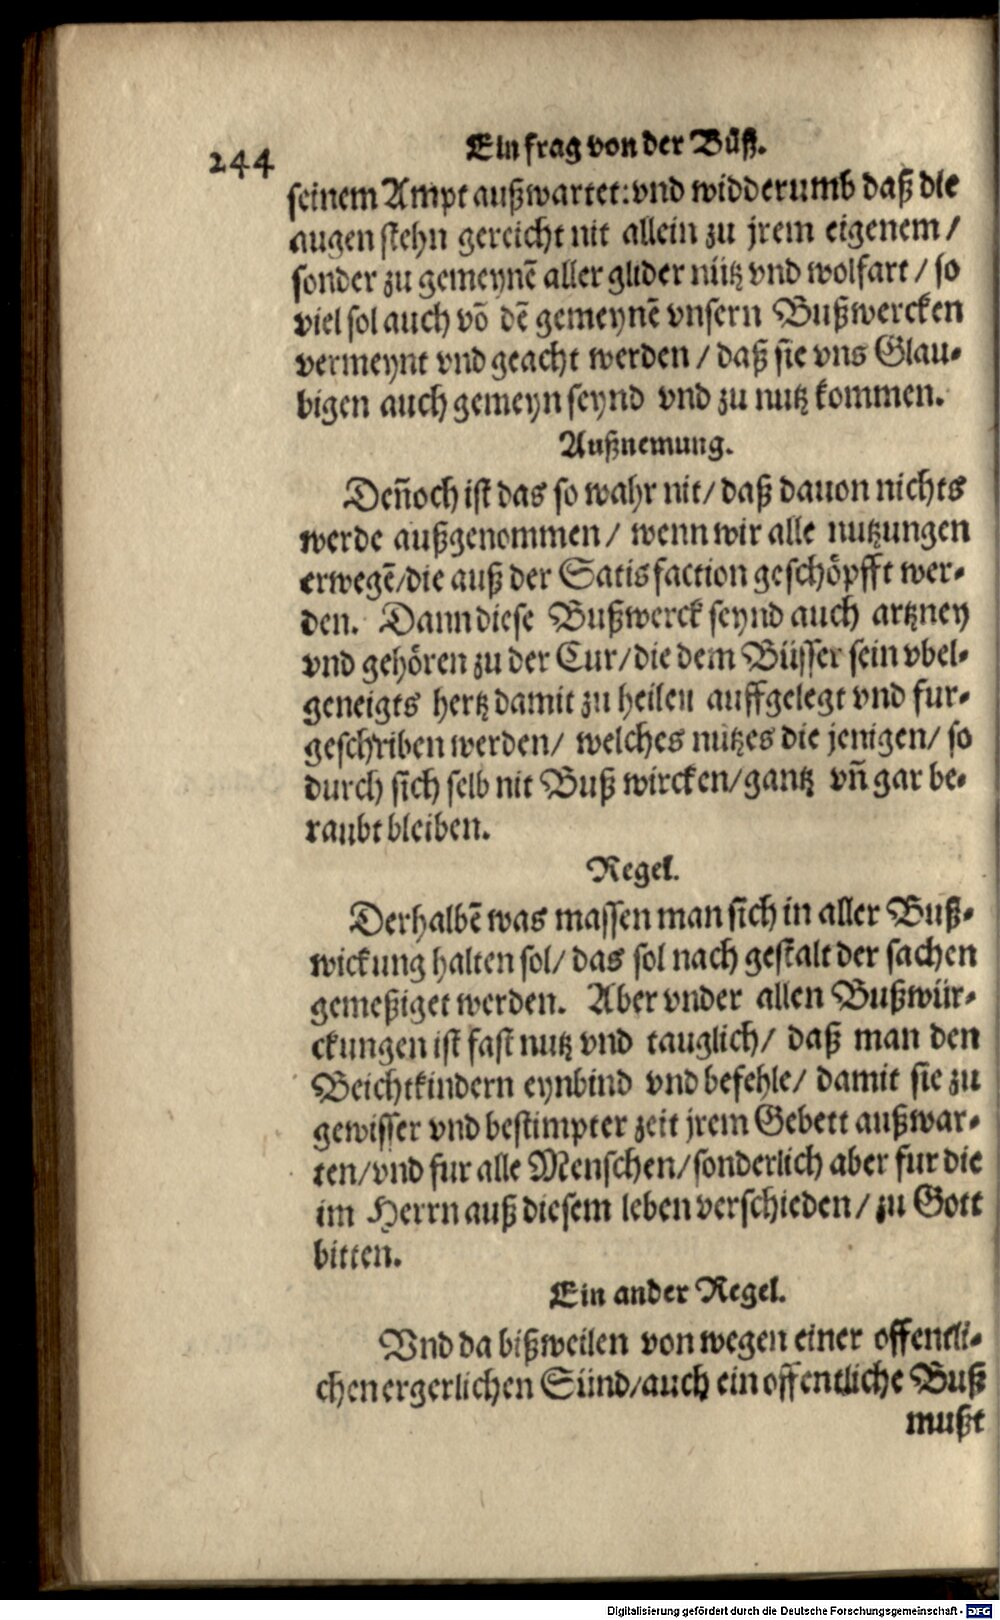 244
Ein frag von der Büß.
seinem Ampt außwartet: vnd widderumb daß die
augen stehn gereicht nit allein zu jrem eigenem /
sonder zu gemeynē aller glider nütz vnd wolfart / so
viel sol auch võ dē gemeynē vnsern Bußwercken
vermeynt vnd geacht werden / daß sie vns Glau-
bigen auch gemeyn seynd vnd zu nutz kommen.
Außnemung.
Deñoch ist das so wahr nit / daß dauon nichts
werde außgenommen / wenn wir alle nutzungen
erwegē / die auß der Satisfaction geschöpfft wer-
den. Dann diese Bußwerck seynd auch artzney
vnd gehören zu der Cur / die dem Büsser sein vbel-
geneigts hertz damit zu heilen auffgelegt vnd fur-
geschriben werden / welches nutzes die jenigen / so
durch sich selb nit Buß wircken / gantz vñ gar be-
raubt bleiben.
Regel.
Derhalbē was massen man sich in aller Buß-
wickung halten sol / das sol nach gestalt der sachen
gemeßiget werden. Aber vnder allen Bußwür-
ckungen ist fast nutz vnd tauglich / daß man den
Beichtkindern eynbind vnd befehle / damit sie zu
gewisser vnd bestimpter zeit jrem Gebett außwar-
ten / vnd fur alle Menschen / sonderlich aber fur die
im Herrn auß diesem leben verschieden / zu Gott
bitten.
Ein ander Regel.
Vnd da bißweilen von wegen einer offentli-
chen ergerlichen Sünd / auch ein offentliche Buß
mußt
Digitalisierung gefördert durch die Deutsche Forschungsgemeinschaft - DFG